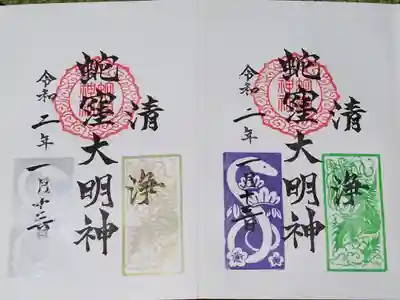 清浄
蛇窪大明神
令和二年一月十
清浄
蛇窪大明神
令和二年一月十